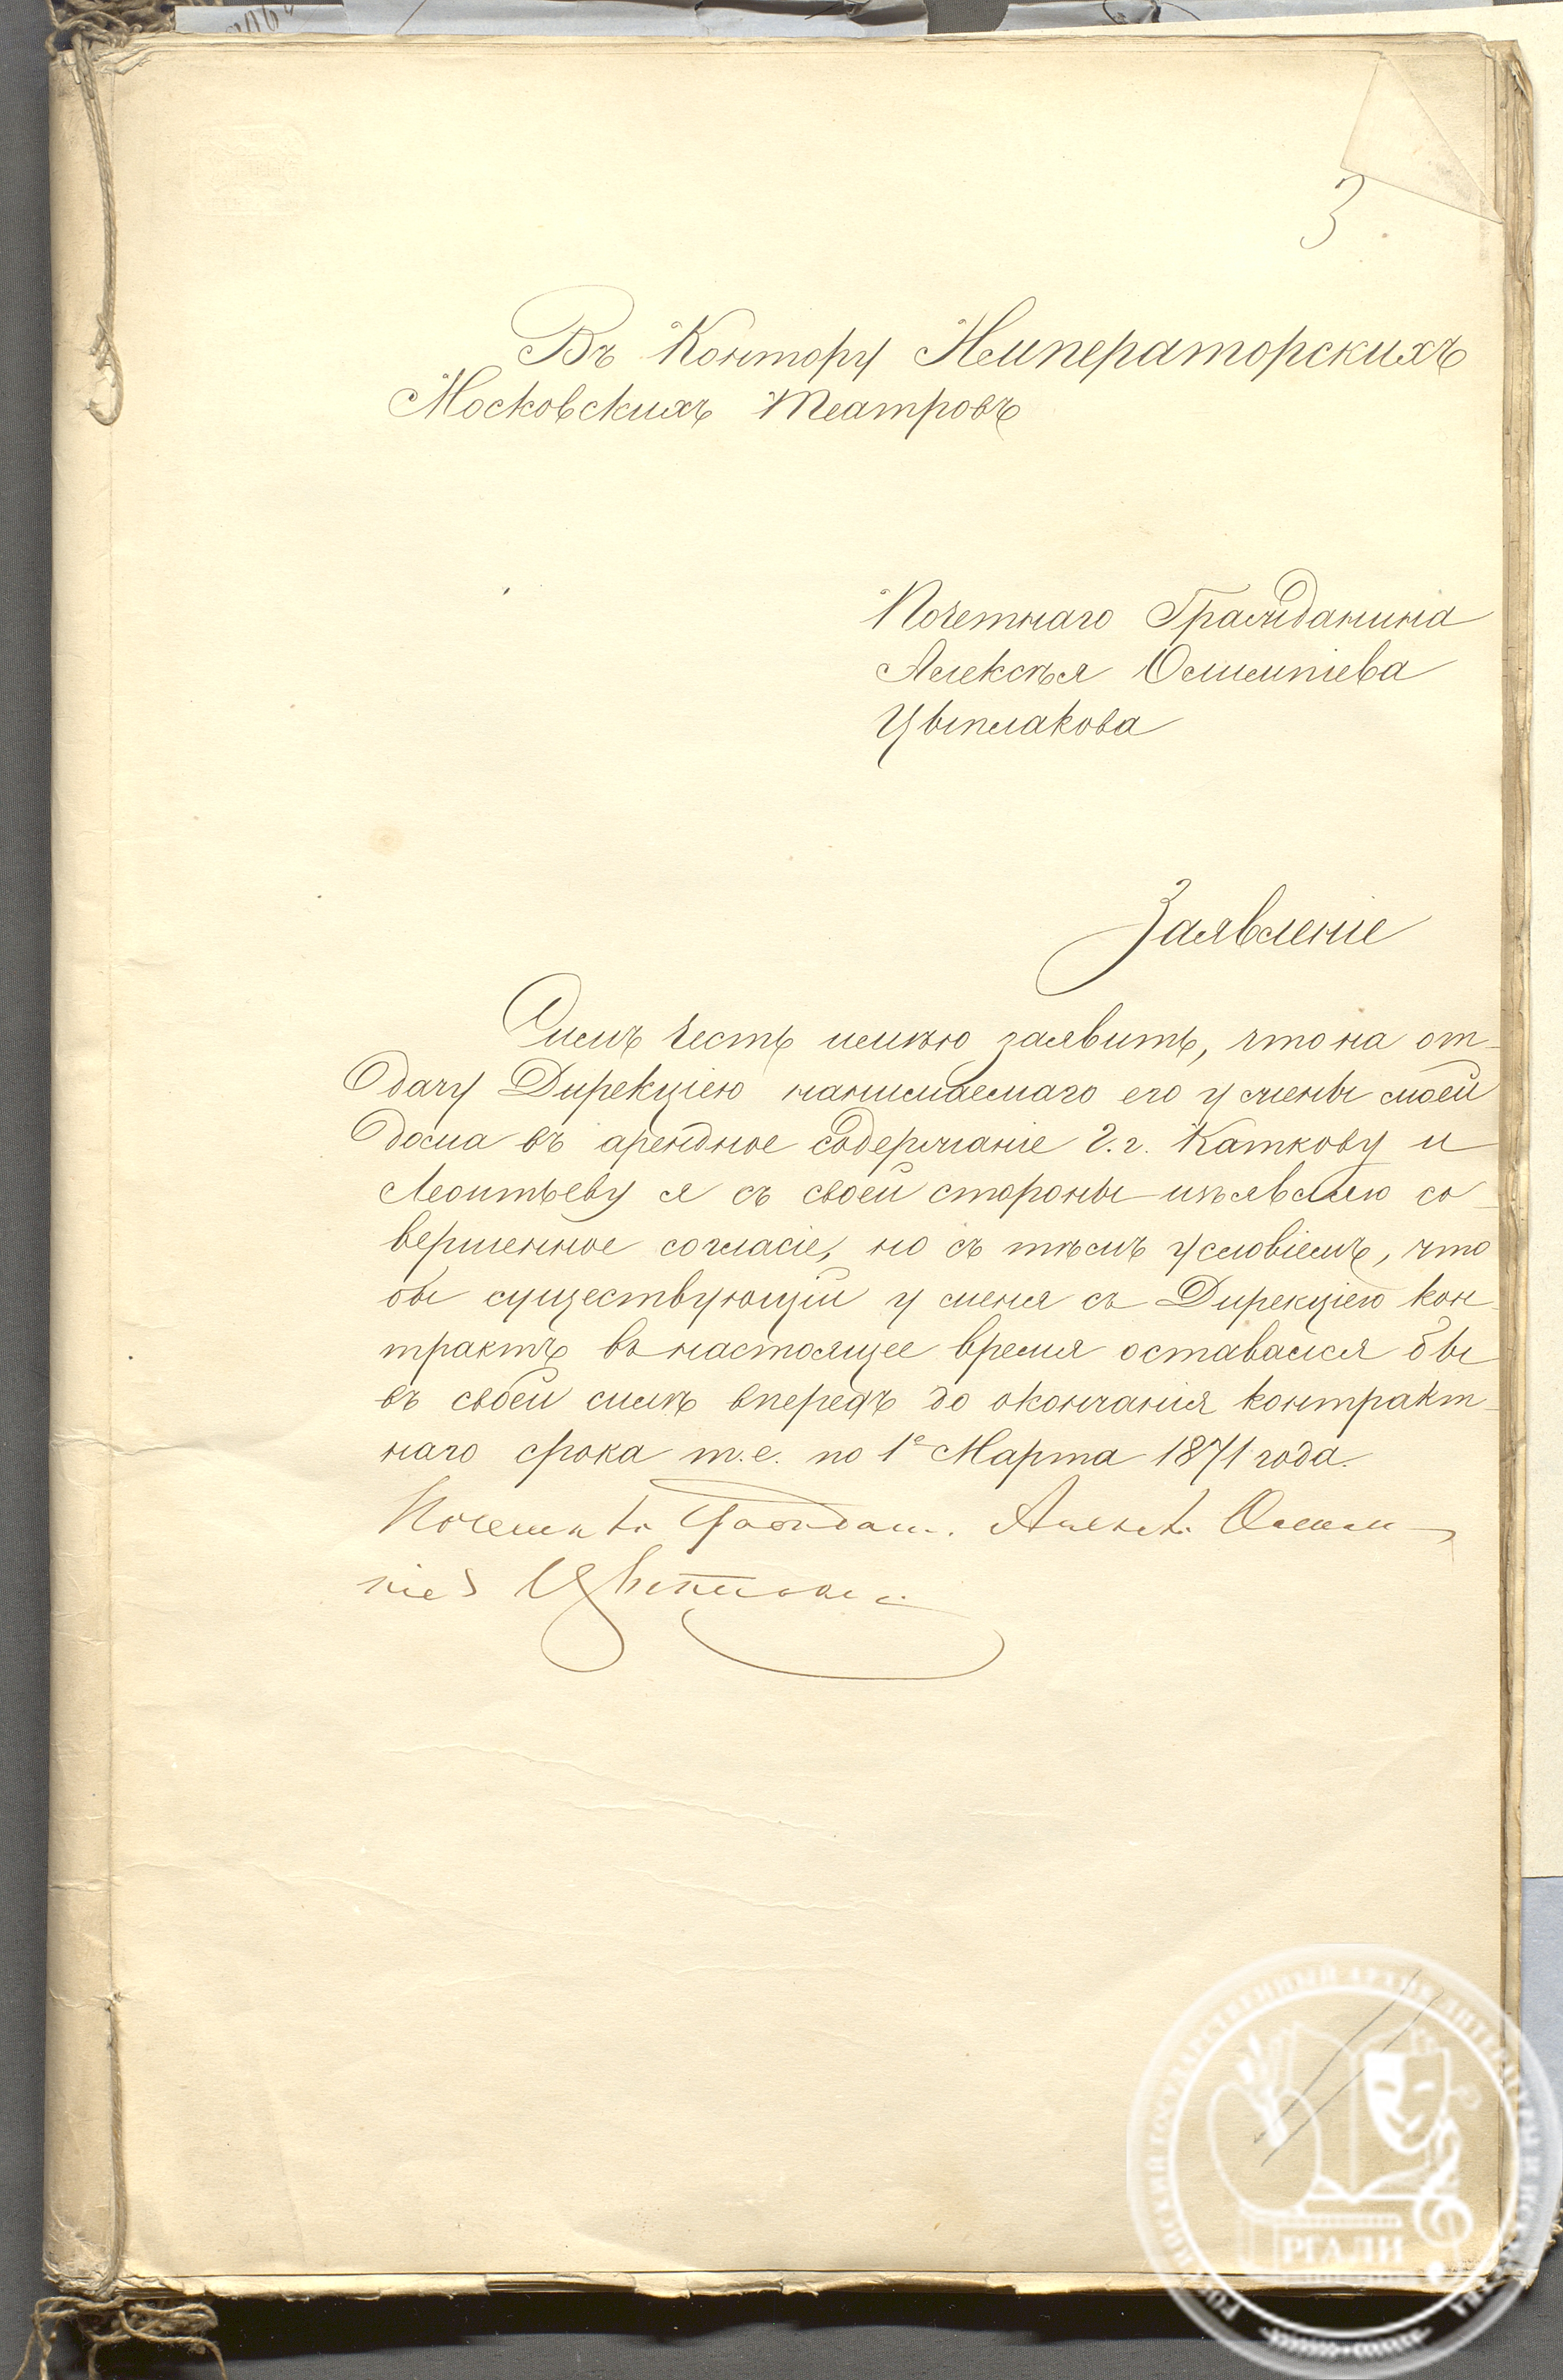 3
Въ Контору Императорскихъ
Московскихъ Театровъ
Почетнаго Гражданина
Алексѣя Олимпіева
Цыплакова
Заявленіе
Симъ честь имѣю заявить, что на от-
дачу Дирекціею нанимаемаго ею у жены моей
дома въ арендное содержаніе г.г. Каткову и
Леонтьеву я съ своей стороны изъявляю со-
вершенное согласіе, но съ тѣмъ условіемъ, что
бы существующій у меня съ Дирекціею кон-
трактъ въ настоящее время оставался бы
въ своей силѣ впередъ до окончанія контракт-
наго срока т.е. по 1е Марта 1871 года.
РГАЛИ